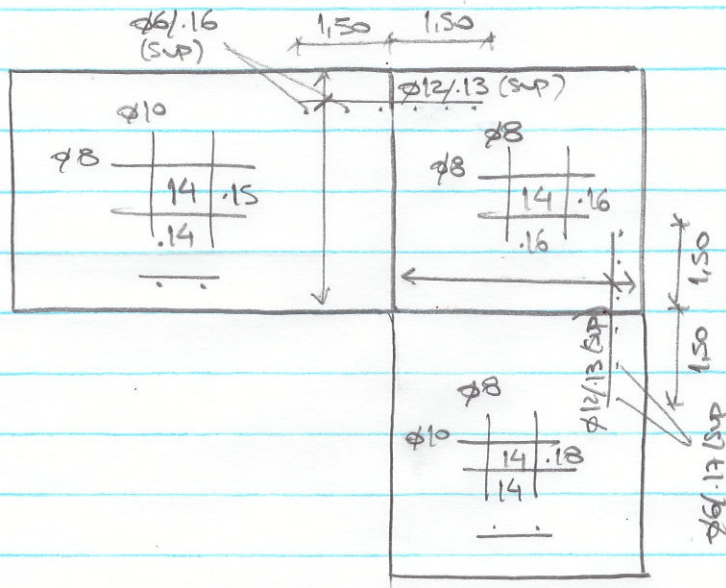 ø6/.16
(Sup)
1,50
1,50
ø12/.13 (sup)
ø10
ø8
14
.15
.14
ø8
ø8
14
.16
.16
1,50
1,50
ø12/.13 (Sup)
ø6/.17 (Sup
ø8
ø10
14
.18
14